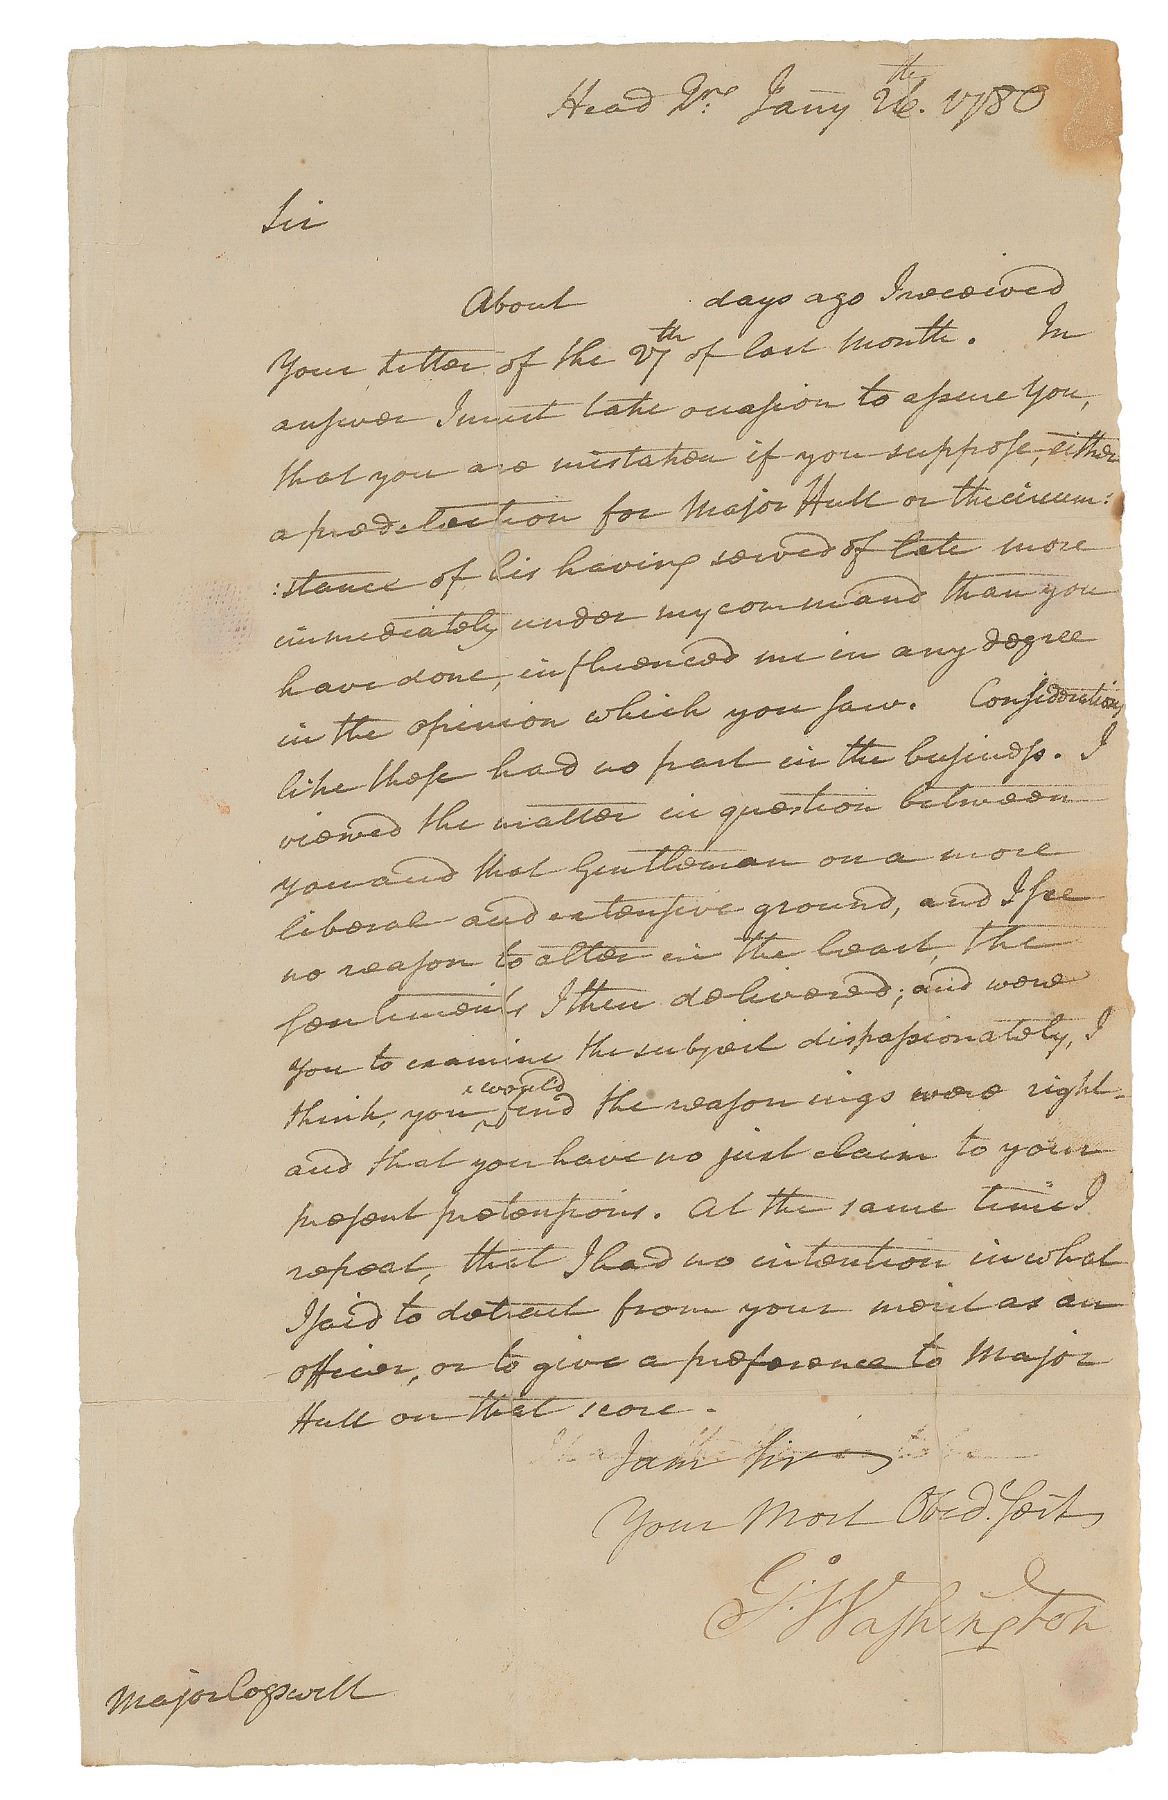 Head Qrs: Jany 26th. 1780
Sir
About days ago I received
Your Letter of the 27th of last Month. In
answer I must take occasion to assure You,
that you are mistaken if you suppose, either
a predelection for Major Hull or the circum:
:stance of his having served of late more
immediately under my command than you
have done, influenced me in any degree
in the opinion which you saw. Considerations
like these had no part in the business. I
viewed the matter in question between
you and that Gentleman on a more
liberal and extensive ground, and I see
no reason to alter in the least, the
Sentiments I then delivered; and were
you to examine the subject dispassionately, I
think, you would find the reasonings were right-
and that you have no just claim to your
present pretensions. At the same time I
repeat, that I had no intention in what
I said to detract from your merit as an
officer, or to give a preference to Major
Hull on that score.
I am Sir
Your Most Obed. Servt
Go: Washington
Major Cogswell